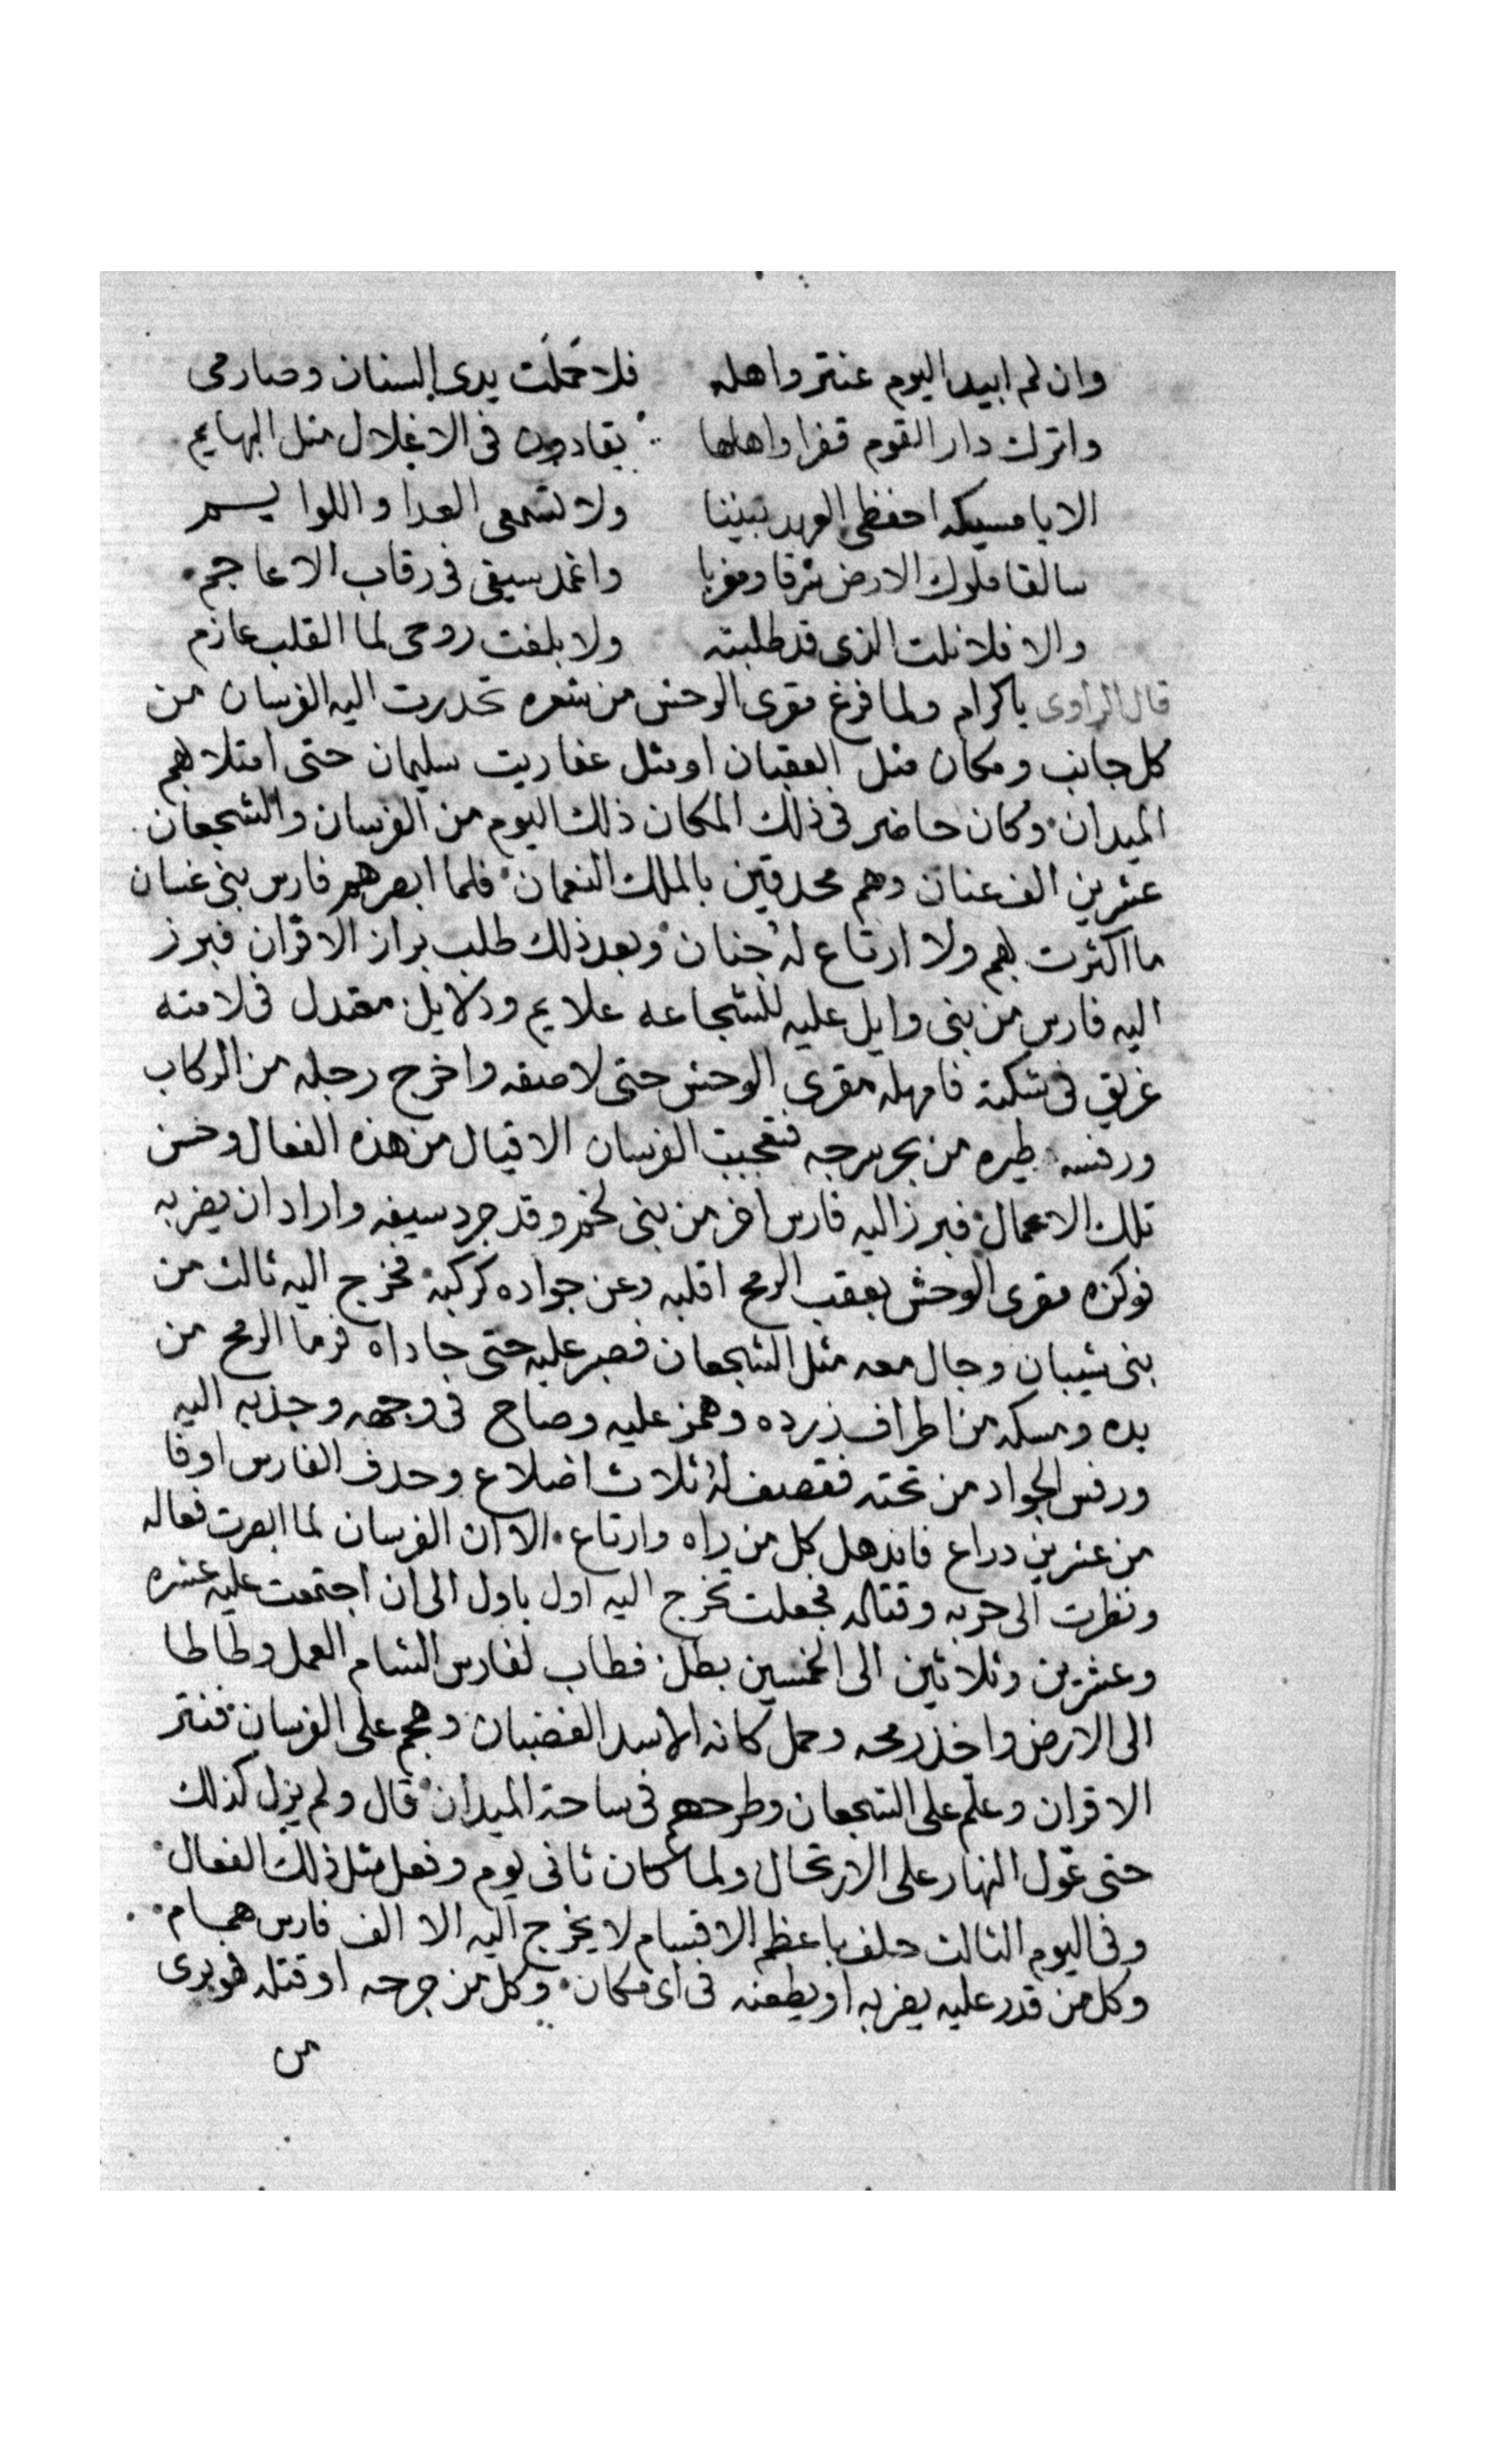 وان لم ابيد اليوم عنتر واهله فلا حَملَت يدى السنان وصارمى
واترك دار القوم قفرا واهلها يقادون فى الاغلال مثل البهايم
الا يا مسيكه احفظى العهد بيننا ولا تسمعى العدا واللوايـــم
سالقا ملوك الارض شرقا ومغربا واغمد سيفى فى رقاب الاعاجم
والا فلا نلت الذى قد طلبته ولا بلغت روحى لما القلب عازم
قال الراوى ياكرام ولما فرغ مقرى الوحش من شعره تحدرت اليه الفرسان من
كل جانب ومكان مثل العقبان او مثل عفاريت سليمان حتى امتلا بهم
الميدان وكان حاضر فى ذلك المكان ذلك اليوم من الفرسان والشجعان
عشرين الف عنان وهم محدقين بالملك النعمان فلما ابصرهم فارس بنى غسان
ما اكثرت بهم ولا ارتاع له جنان وبعد ذلك طلب براز الاقران فبرز
اليه فارس من بنى وايل عليه للشجاعه علايم ودلايل معتدل فى لامته
غريق فى شكته فامهله مقرى الوحش حتى لاصقه واخرج رجله من الركاب
ورفسه طيره من بحر سرجه فتعجبت الفرسان الاقيال من هذه الفعال وحسن
تلك الاعمال فبرز اليه فارس اخر من بنى لخم وقد جرد سيفه واراد ان يضربه
فوكزه مقرى الوحش بعقب الرمح اقلبه وعن جواده كركبه فخرج اليه ثالث من
بنى شيبان وجال معه مثل الشجعان فصبر عليه حتى جاداه فرما الرمح من
يده ومسكه من اطراف زرده وهمز عليه وصاح فى وجهه وجذبه اليه
ورفس الجواد من تحته فقصف له ثلاث اضلاع وحدف الفارس اوفا
من عشرين دراع فاندهل كل من راه وارتاع الا ان الفرسان لما ابصرت فعاله
ونظرت الى حربه وقتاله فجعلت تخرج اليه اول باول الى ان اجتمعت عليه عشره
وعشرين وثلاثين الى الخمسين بطل فطاب لفارس الشام العمل وطاطا
الى الارض واخذ رمحه وحمل كانه الاسد الغضبان وهجم على الفرسان فنتر
الاقران وعلم على الشجعان وطرحهم فى ساحة الميدان قال ولم يزل كذلك
حتى عول النهار على الارتحال ولما كان ثانى يوم وفعل مثل ذلك الفعال
وفى اليوم الثالث حلف باعظم الاقسام لا يخرج اليه الا الف فارس همام
وكل من قدر عليه يضربه او يطعنه فى اى مكان وكل من جرحه او قتله فهو برى
من